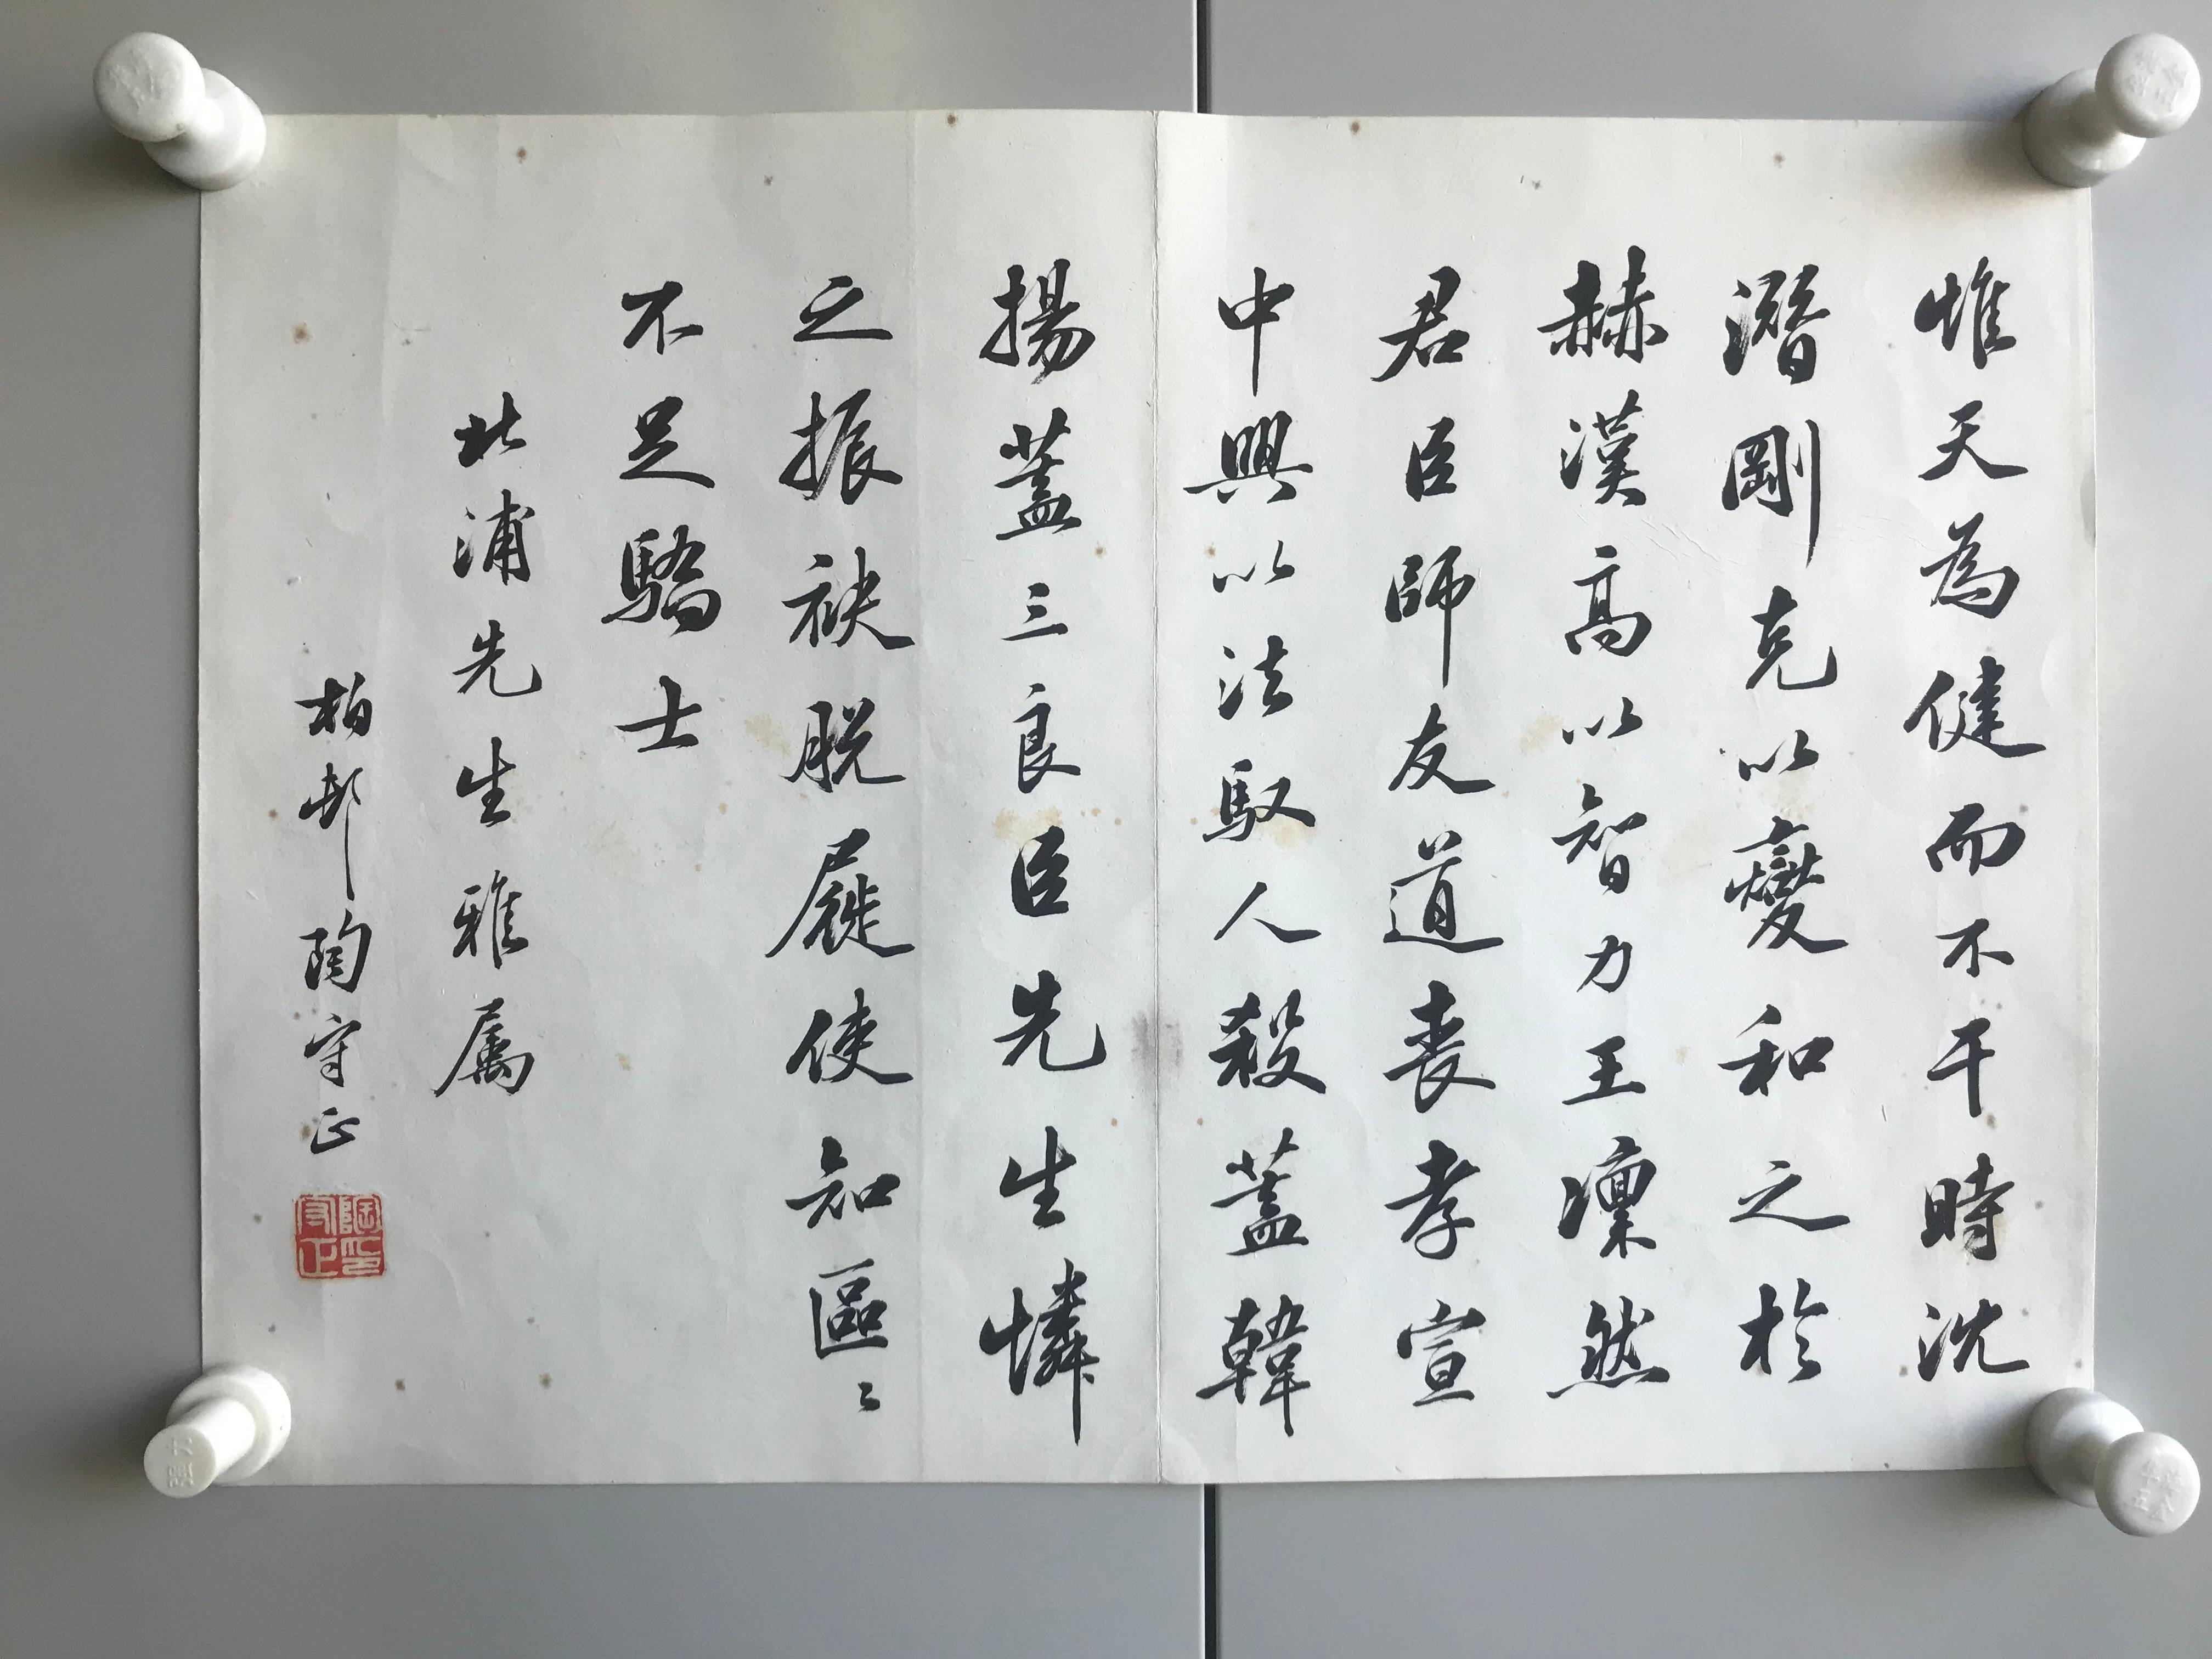 惟天為健而不干時沈
潛剛克以爕和之於
赫漢高以智力王凜然
君臣師友道喪孝宣
中興以法馭人殺蓋韓
揚蓋三良臣先生憐
之振袂脫屣使知區〻
不足驕士
北浦先生雅屬
柏邨陶守正
陶守正印